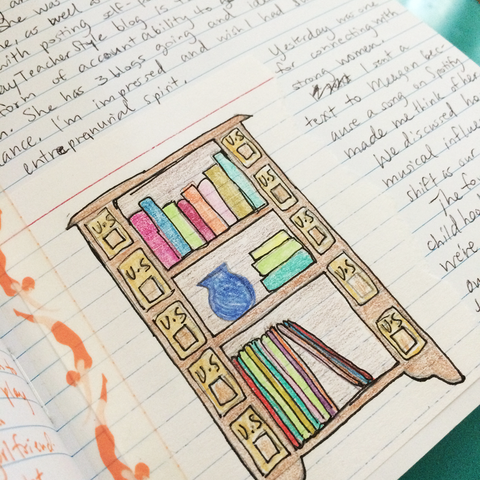 She was
e, as well a
with posting self-p
ayTeacherStyle blog is t
form of accountability to g
n. She has 3 blogs going and
ance. I'm impressed and wish I had
entreprenurial spirit.
Yesterday was one
for connecting with
strong women.
I sent a
text to Meagan bec-
ause a song on Spotify
made me think of her
We discussed ho
musical influe
shift as our
The fo
childhood
we're
U.S
U.S
U.S
U.S
U.S
U.S
U.S
U.S
U.S
U.S
play
girlfriend